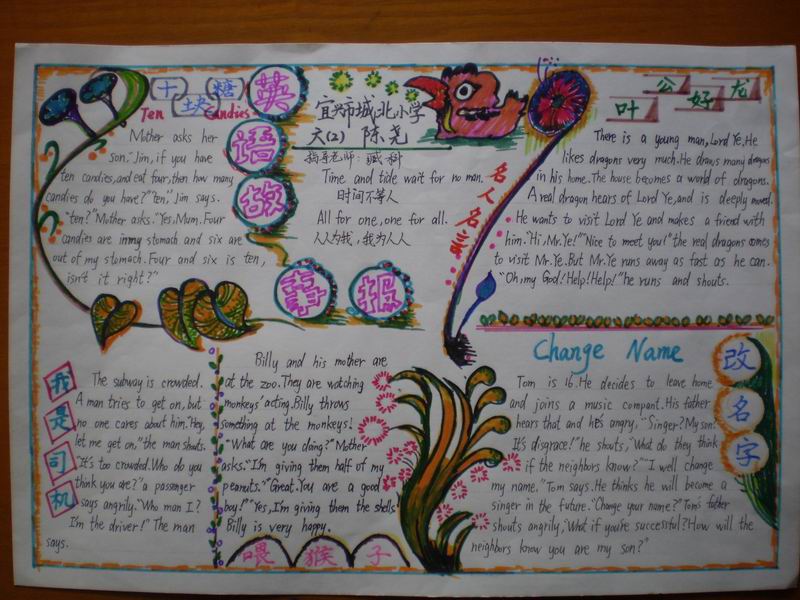 十块糖
Ten Candies
Mother asks her
son."Jim, if you have
ten candies, and eat four, then how many
candies do you have?" "ten", Jim says.
"ten?" Mother asks. "Yes, Mum. Four
candies are in my stomach and six are
out of my stomach. Four and six is ten,
isn't it right?"
英语故事报
宜兴市城北小学
六(2) 陈尧
指导老师:臧科
Time and tide wait for no man.
时间不等人
All for one, one for all.
人人为我,我为人人
名人名言
叶公好龙
There is a young man, Lord Ye. He
likes dragons very much. He draws many dragons
in his home. The house becomes a world of dragons.
A real dragon hears of Lord Ye, and is deeply moved.
He wants to visit Lord Ye and makes a friend with
him. "Hi, Mr. Ye!" "Nice to meet you!" the real dragons comes
to visit Mr. Ye. But Mr. Ye runs away as fast as he can.
"Oh, my God! Help! Help!" he runs and shouts.
我是司机
The subway is crowded.
A man tries to get on, but
no one cares about him. "Hey,
let me get on," the man shouts.
"It's too crowded. Who do you
think you are?" a passenger
says angrily. "Who man I?
I'm the driver!" The man
says.
Billy and his mother are
at the zoo. They are watching
monkeys' acting. Billy throws
something at the monkeys!
"What are you doing?" Mother
asks. "I'm giving them half of my
peanuts." "Great. You are a good
boy!" "Yes, I'm giving them the shells."
Billy is very happy.
喂猴子
Change Name
改名字
Tom is 16. He decides to leave home
and joins a music compant. His father
hears that and he's angry, "Singer? My son?
It's disgrace!" he shouts, "What do they think
if the neighbors know?" "I well change
my name." Tom says. He thinks he will become a
singer in the future. "Change your name?" Tom's father
shouts angrily, "What if you're successful? How will the
neighbors know you are my son?"